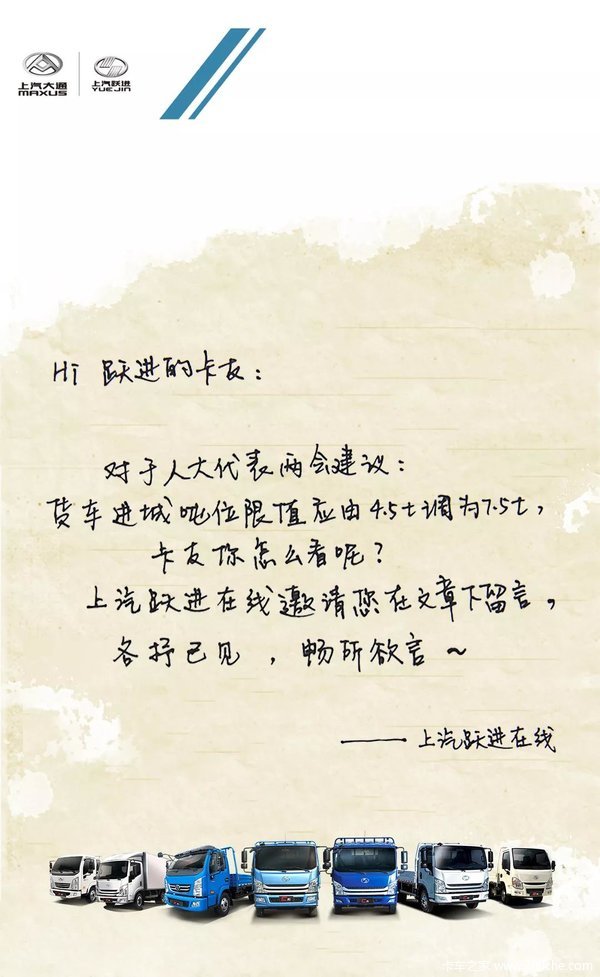 上汽大通 上汽跃进
MAXUS YUEJIN
Hi 跃进的卡友：
对于人大代表两会建议：
货车进城吨位限值应由4.5t调为7.5t，
卡友你怎么看呢？
上汽跃进在线邀请您在文章下留言，
各抒己见，畅所欲言～
——上汽跃进在线